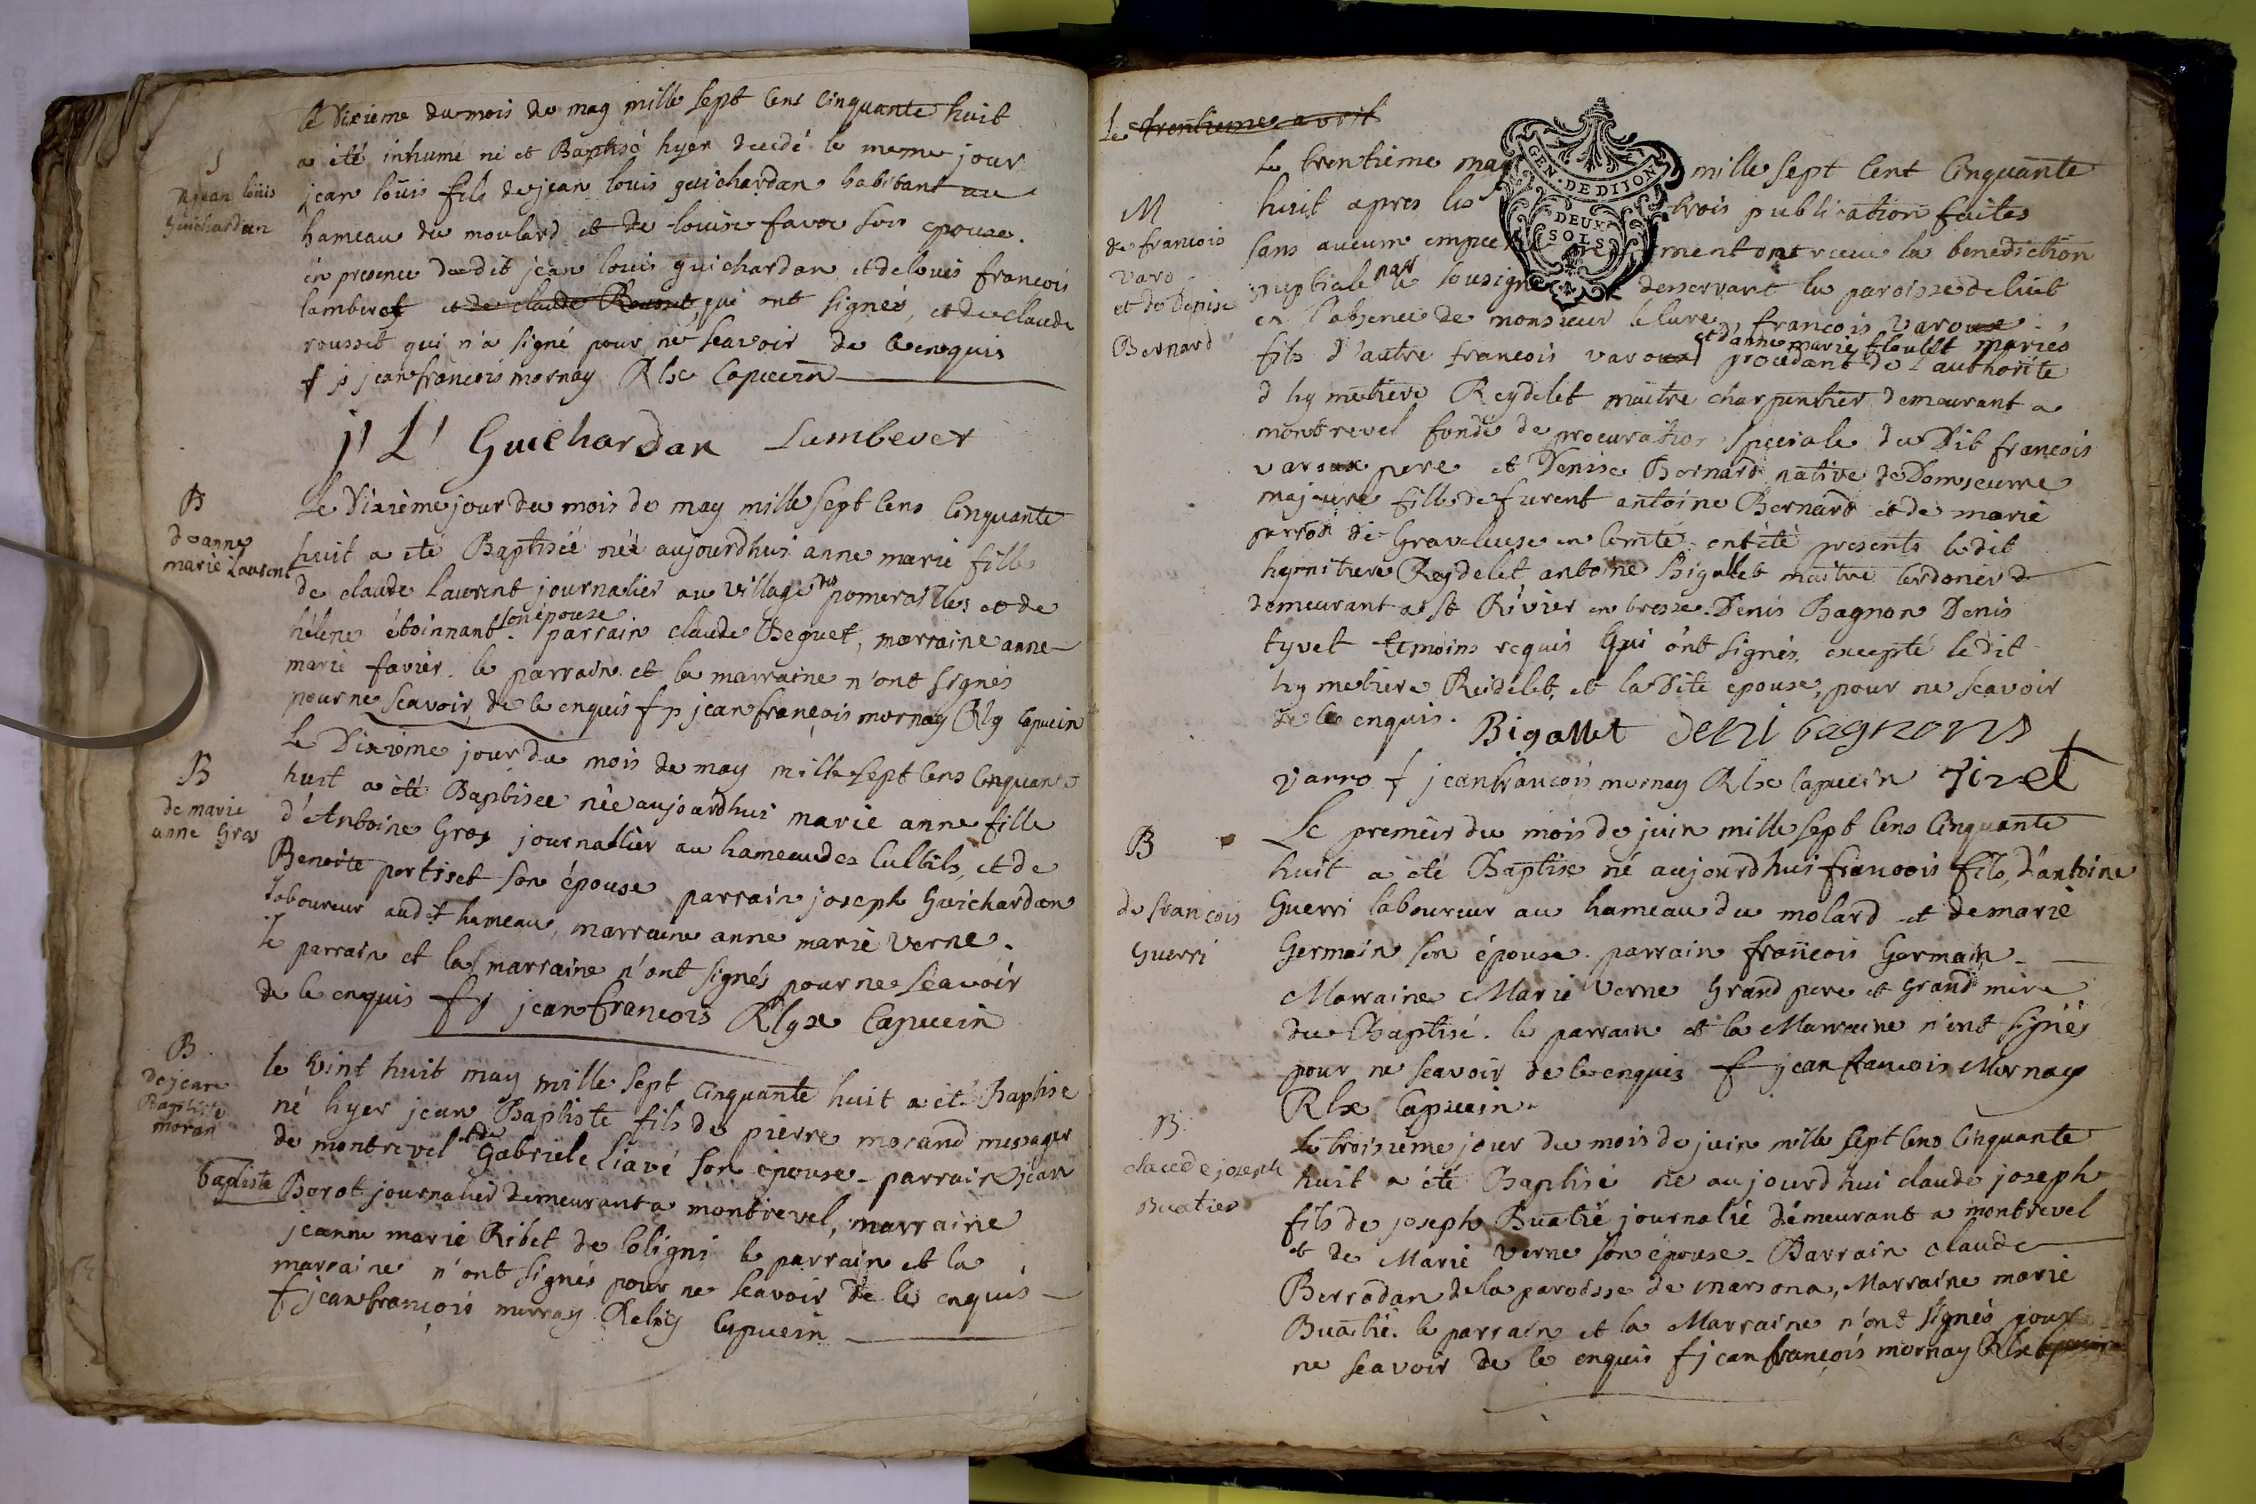 le Dixieme du mois de may mille sept cens cinquante huit
a été inhumé né et Baptisé hyer decedé le meme jour
S
de jean louis
Guichardan
jean loüis fils de jean louis guichardan habitant au
hameau du moulard et de louise favre son epouse.
en presence dudit jean louis guichardan et de louis francois
lamberet et de claude Rousset, qui ont signés, et de claude
rousset qui n'a signé pour ne scavoir de ce enquis
f jean francois mornay Rlx Capucin
j L Guichardan Lamberet
B
de anne
marie Laurent
Le Dixième jour du mois de may mille sept cens cinquante
huit a eté Baptisée née aujourdhui anne marie fille
de claude Laurent journalier au village des pomerailles et de
hélène étoinnant son épouse. parrain claude Beguet, marraine anne
marie favier. le parrain et la marraine n'ont signés
pour ne scavoir de ce enquis f jean françois mornay Rlg Capucin
B
de marie
anne Gros
Le Dixième jour du mois de may mille sept cens cinquante
huit a été Baptisée née aujourdhui marie anne fille
d'Antoine Gros journallier au hameau des Cullats, et de
Benoite portiset son épouse parrain joseph Guichardan
laboureur audit hameau, marraine anne marie verne.
le parrain et la marraine n'ont signés pour ne scavoir
de ce enquis f jean francois Rlgx Capucin
B
de jean
Baptiste
moran
le vint huit may mille sept cinquante huit a eté Baptise
né hyer jean Baptiste fils de pierre morand messager
de montrevel et de Gabriele liavé son epouse - parrain jean
baptiste Borot journalier demeurant a montrevel, marraine
jeanne marie Ribet de Coligni le parrain et la
marraine n'ont signés pour ne scavoir de ce enquis
f jean françois mornay Relig Capucin
Le trentieme avril
M
de francois
varo
et de Denise
Bernard
Le trentième may mille sept cent cinquante
GEN. DE DIJON
DEUX
SOLS
huit apres les trois publication faites
sans aucum empechement ont receu la benediction
nuptiale par le sousigné desservant la paroisse de
en l'absence de monsieur le Cure, francois varoux
et d'anne marie floullet mariés
fils d'autre francois varoux procedant de l'authorité
d'hymetiere Reydelet maitre charpentier demeurant a
montrevel fondé de procuration speciale du Dit francois
varoux pere et Denise Bernard native de Domseurre
majeure fille de furent antoine Bernard et de marie
perron de Graveleuse en Comté ont été presents le dit
hymitiere Reydelet antoine Bigallet maitre Cordonier
demeurant a st Rivier en bresse. Denis Bagnon Denis
tyvet temoins requis qui ont signés, excepté le dit
hymetiere Reidelet, et la Dite epouse, pour ne scavoir
de ce enquis. Bigallet deni bagnons
varro f jean francois mornay Rlx Capucin tivet
B
de francois
Guerri
Le premier du mois de juin mille sept cens cinquante
huit a été Baptise né aujourdhui francois fils d'antoine
Guerri laboureur au hameau du molard et de marie
Germain son épouse. parrain francois Germain
Marraine Marie verne Grand pere et Grand mere
du Baptisé. le parrain et la Marraine n'ont signés
pour ne scavoir de ce enquis f jean francois Mornay
Rlx Capucin.
B
claude joseph
Buatier
Le troisieme jour du mois de juin mille sept cens cinquante
huit a été Baptisé né aujourdhui claude joseph
fils de joseph Buatié journalié démeurant a montrevel
et de Marie verne son épouse. Parrain claude
Berrodan de la paroisse de marsona, Marraine marie
Buatié. le parrain et la Marraine n'ont signés pour
ne scavoir de ce enquis f jean françois mornay Rlx Capucin